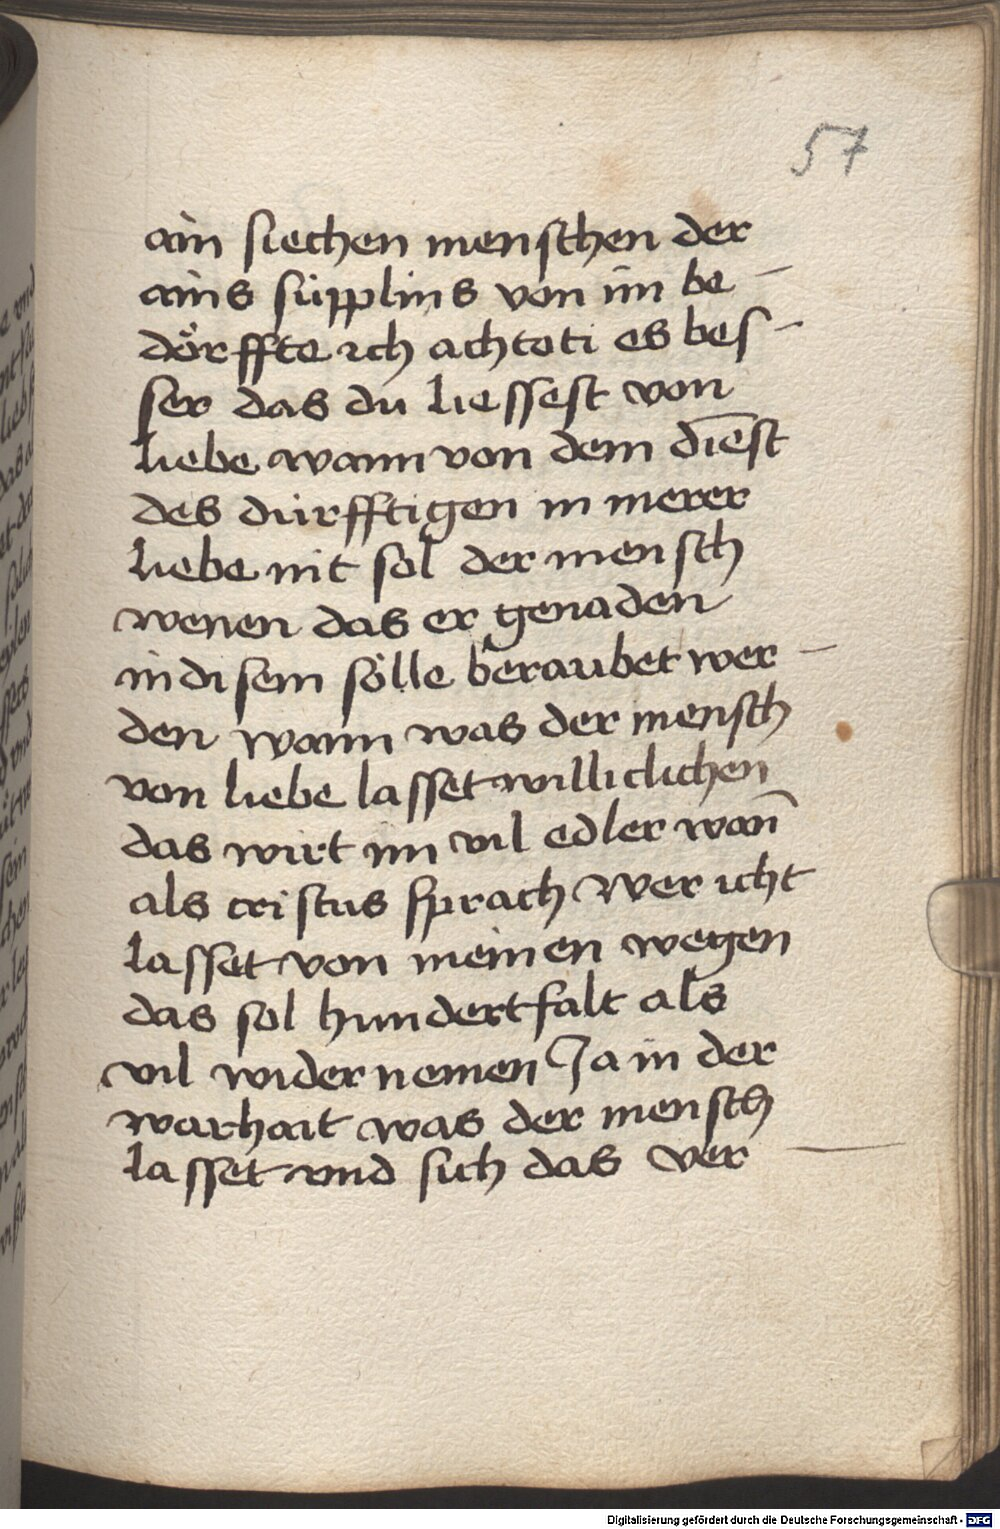 57
ain siechen menschen der
ains süpplins von im be
dörffte ich achtoti es bes
ser das du liessest von
liebe wann von dem diēst
des dürfftigen in merer
liebe nit sol der mensch
wenen das er genaden
in disem sölle beraubet wer
den wann was der mensch
von liebe lasset williclichen
das wirt im vil edler wan̄
als cristus sprach wer icht
lasset von meinen wegen
das sol hundertfalt als
vil wider nemen Ja in der
warhait was der mensch
lasset vnd sich das ver
Digitalisierung gefördert durch die Deutsche Forschungsgemeinschaft - DFG